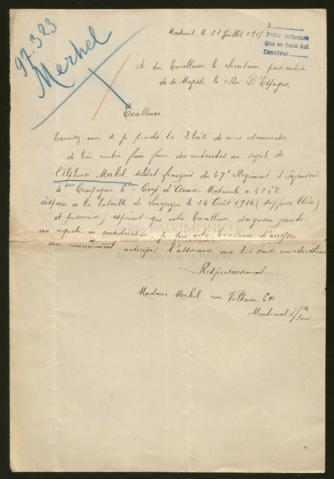 97.323
Merhel
Montreuil, le 28 Juillet 1915
A
Pedir informes
Que se haga Así
Devolver
A Son Excellence le Secrétaire particulier
de sa Majesté le Roi D'Espagne
Excellence
Excusez moi si je prends la liberté de vous demander
de bien vouloir faire faire des recherches au sujet de
Merhel soldat français du 67e Régiment d'Infanterie
4eme Compagnie 6eme Corps d'Armée Matricule
disparu a la bataille de le 24 Août 1914
et prisonnier, espérant que votre Excellence daignera prendre
ma requête en considération je prie votre Excellence d'accepter
mes anticipés l'assurance ma très haute considération
Respectueusement
Madame Merhel rue Voltaire
Montreuil s/